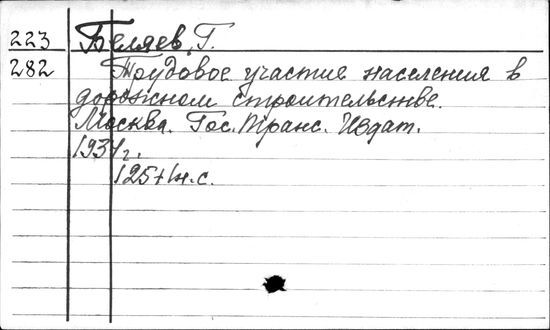 223 Беляев, Г.
282 Трудовое участие населения в
дорожном строительстве.
Москва. Гос. Транс. Издат.
1934 г.
125+1н.с.